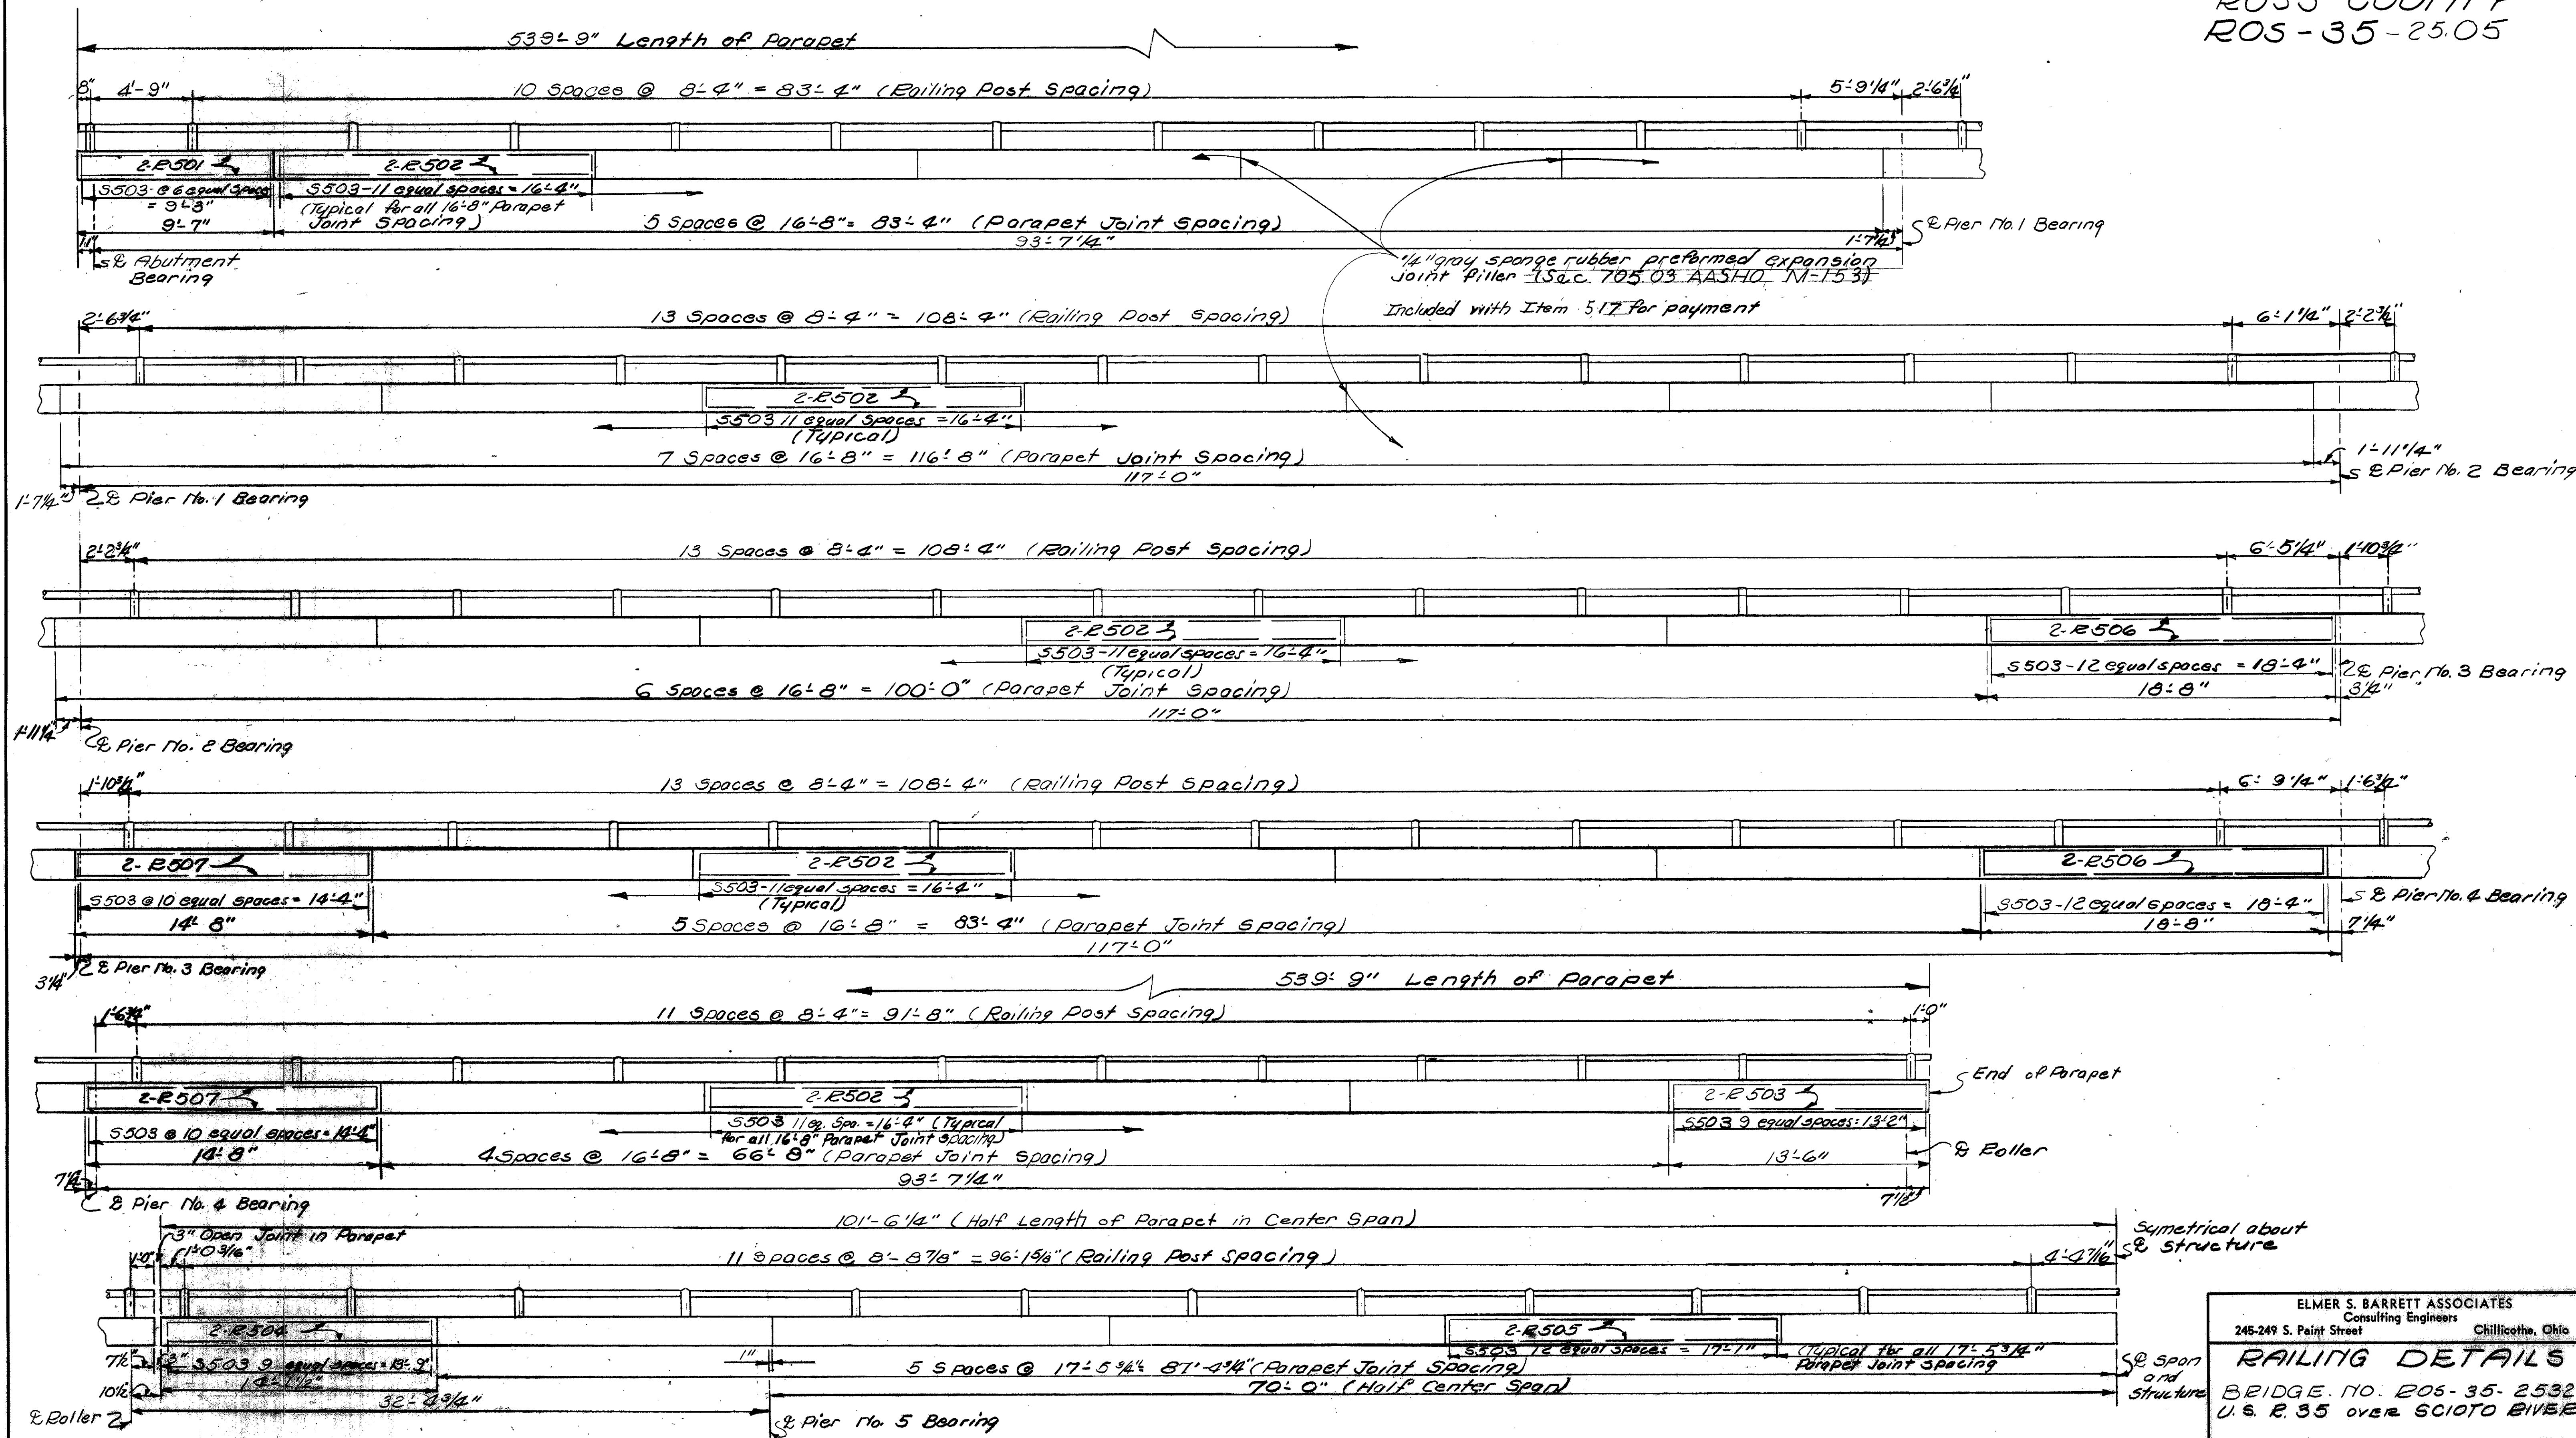 ROSS COUNTY
ROS-35-25.05
539'-9" Length of Parapet
8" 4'-9" 10 Spaces @ 8'-4" = 83'-4" (Railing Post Spacing) 5'-9 1/4" 2'-6 3/4"
2-R501 2-R502
S503 @ 6 equal Spaces S503-11 equal spaces = 16'-4"
= 9'-3" (Typical for all 16'-8" Parapet
9'-7" Joint Spacing) 5 Spaces @ 16'-8" = 83'-4" (Parapet Joint Spacing)
℄ Pier No. 1 Bearing
93'-7 1/4" 1'-7 1/4"
℄ Abutment
Bearing
1/4" gray sponge rubber preformed expansion
joint filler (Sec. 705.03 AASHO M-153)
Included with Item 517 for payment
2'-6 3/4" 13 Spaces @ 8'-4" = 108'-4" (Railing Post Spacing) 6'-1 1/4" 2'-2 3/4"
2-R502
S503 11 equal spaces = 16'-4"
(Typical)
7 Spaces @ 16'-8" = 116'-8" (Parapet Joint Spacing) 1'-11 1/4"
117'-0" ℄ Pier No. 2 Bearing
1'-7 1/4" ℄ Pier No. 1 Bearing
2'-2 3/4" 13 Spaces @ 8'-4" = 108'-4" (Railing Post Spacing) 6'-5 1/4" 1'-10 3/4"
2-R502 2-R506
S503-11 equal spaces = 16'-4" S503-12 equal spaces = 18'-4" ℄ Pier No. 3 Bearing
(Typical)
6 Spaces @ 16'-8" = 100'-0" (Parapet Joint Spacing) 18'-8" 3 1/4"
117'-0"
1'-11 1/4" ℄ Pier No. 2 Bearing
1'-10 3/4" 13 Spaces @ 8'-4" = 108'-4" (Railing Post Spacing) 6'-9 1/4" 1'-6 3/4"
2-R507 2-R502 2-R506
S503 @ 10 equal spaces = 14'-4" S503-11 equal spaces = 16'-4" S503-12 equal spaces = 18'-4" ℄ Pier No. 4 Bearing
(Typical)
14'-8" 5 Spaces @ 16'-8" = 83'-4" (Parapet Joint Spacing) 18'-8" 7 1/4"
117'-0"
3 1/4" ℄ Pier No. 3 Bearing
539'-9" Length of Parapet
1'-6 3/4" 11 Spaces @ 8'-4" = 91'-8" (Railing Post Spacing) 1'-0"
End of Parapet
2-R507 2-R502 2-R503
S503 @ 10 equal spaces = 14'-4" S503 11 eq. Spa. = 16'-4" (Typical S503 9 equal spaces: 13'-2"
for all 16'-8" Parapet Joint spacing)
14'-8" 4 Spaces @ 16'-8" = 66'-8" (Parapet Joint Spacing) 13'-6" ℄ Roller
7 1/4" 93'-7 1/4" 7 1/2"
℄ Pier No. 4 Bearing
101'-6 1/4" (Half Length of Parapet in Center Span)
3" Open Joint in Parapet
Symetrical about
℄ Structure
1'-0" 1'-0 3/16" 11 Spaces @ 8'-8 7/8" = 96'-1 5/8" (Railing Post Spacing) 4'-4 7/16"
2-R504 2-R505
7 1/2" 2" S503 9 equal spaces = 13'-9" 1" S503 12 equal spaces = 17'-1" (Typical for all 17'-5 3/4"
Parapet Joint Spacing
5 Spaces @ 17'-5 3/4" = 87'-4 3/4" (Parapet Joint Spacing)
10 1/2" 14'-1 1/2" 70'-0" (Half Center Span)
℄ Span
and
Structure
32'-4 3/4"
℄ Roller ℄ Pier No. 5 Bearing
ELMER S. BARRETT ASSOCIATES
Consulting Engineers
245-249 S. Paint Street Chillicothe, Ohio
RAILING DETAILS
BRIDGE. NO. ROS-35-2532
U.S. R. 35 OVER SCIOTO RIVER